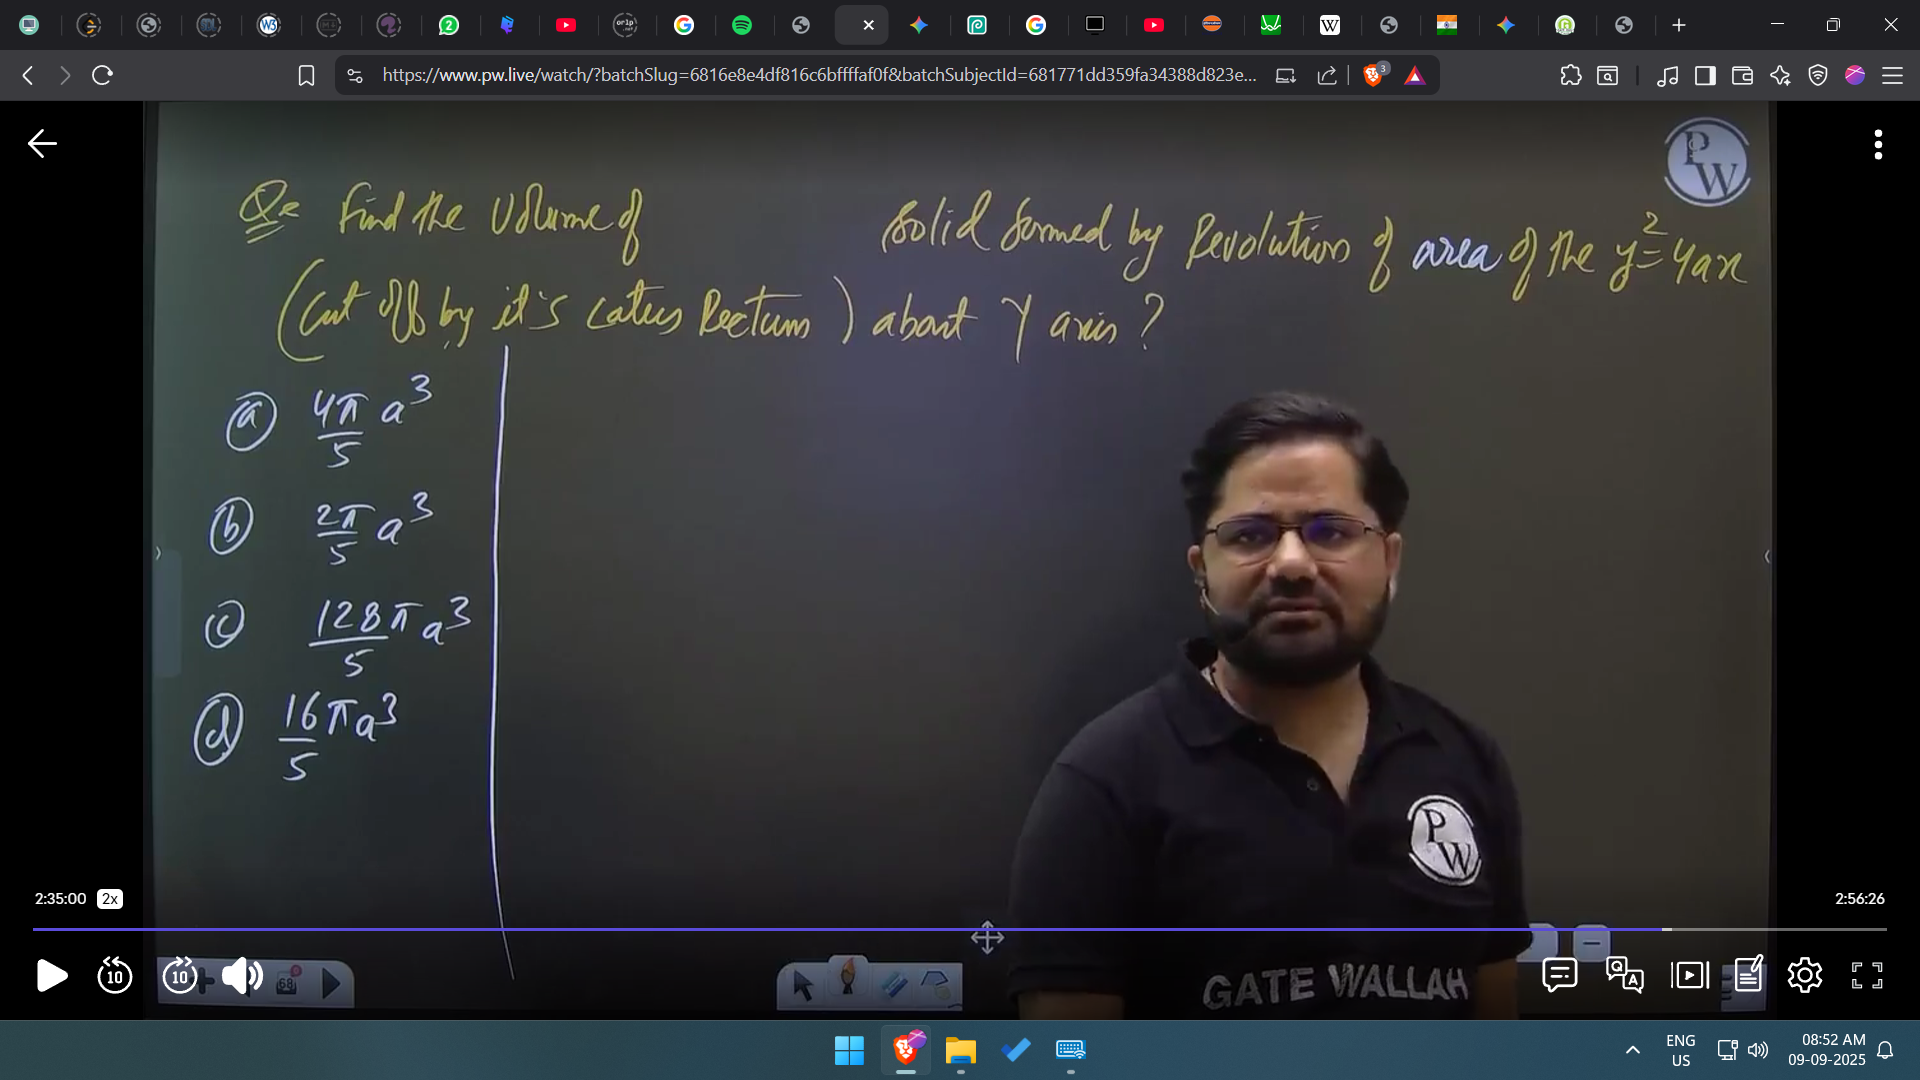 W3
2
or1p
.net
G
P
G
W
https://www.pw.live/watch/?batchSlug=6816e8e4df816c6bffffaf0f&batchSubjectId=681771dd359fa34388d823e...
3
PW
Q= Find the Volume of Solid formed by Revolution of area of the y²=4ax
(Cut off by it's Latus Rectum) about Y axis ?
(a) 4π/5 a³
(b) 2π/5 a³
(c) 128/5 π a³
(d) 16/5 πa³
PW
GATE WALLAH
2:35:00 2x
2:56:26
10
10
68
Q A
ENG
US
08:52 AM
09-09-2025